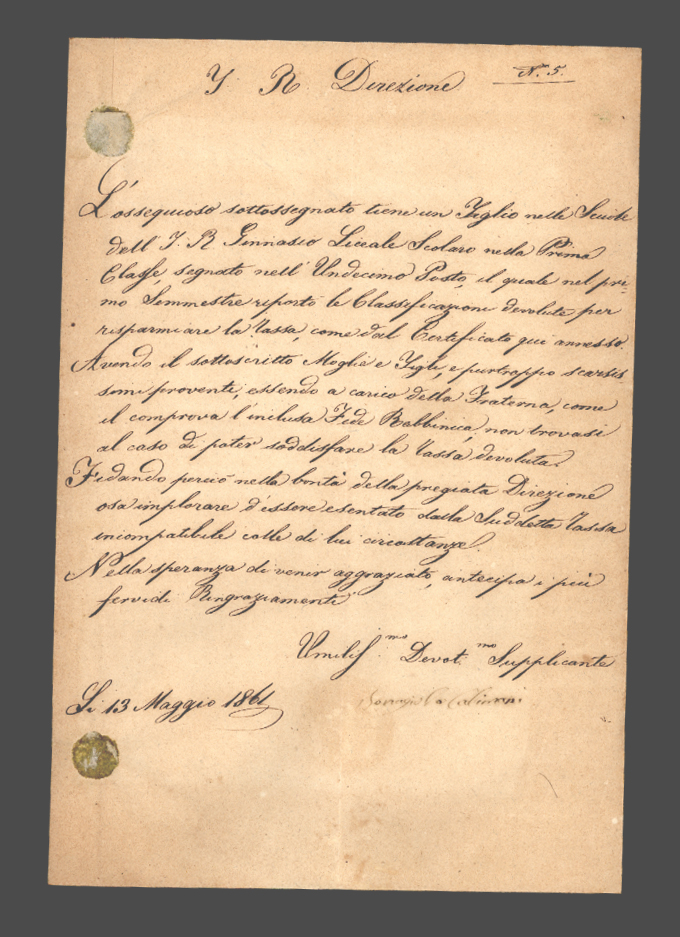 I. R. Direzione
N.° 5.
L'ossequioso sottossegnato tiene un Figlio nelle Scuole
dell' I. R. Ginnasio Liceale Scolaro nella Prima
Classe, segnato nell' Undecimo Posto, il quale nel pri-
mo Semmestre riportò le Classificazioni devolute per
risparmiare la Tassa, come dal Certificato qui annesso.
Avendo il sottoscritto Moglie e Figli, e purtroppo scarsis
simi proventi, essendo a carico della Fraterna, come
il comprova l'inclusa Fede Rabbinica, non trovasi
al caso di poter soddisfare la Tassa devoluta.
Fidando perciò nella bontà della pregiata Direzione
osa implorare d'essere esentato dalla Suddetta Tassa
incompatibile colle di lui circostanze.
Nella speranza di venir aggraziato, antecipa i più
fervidi Ringraziamenti
Umiliss.mo Devot.mo Supplicante
Calimani
Li 13 Maggio 1861